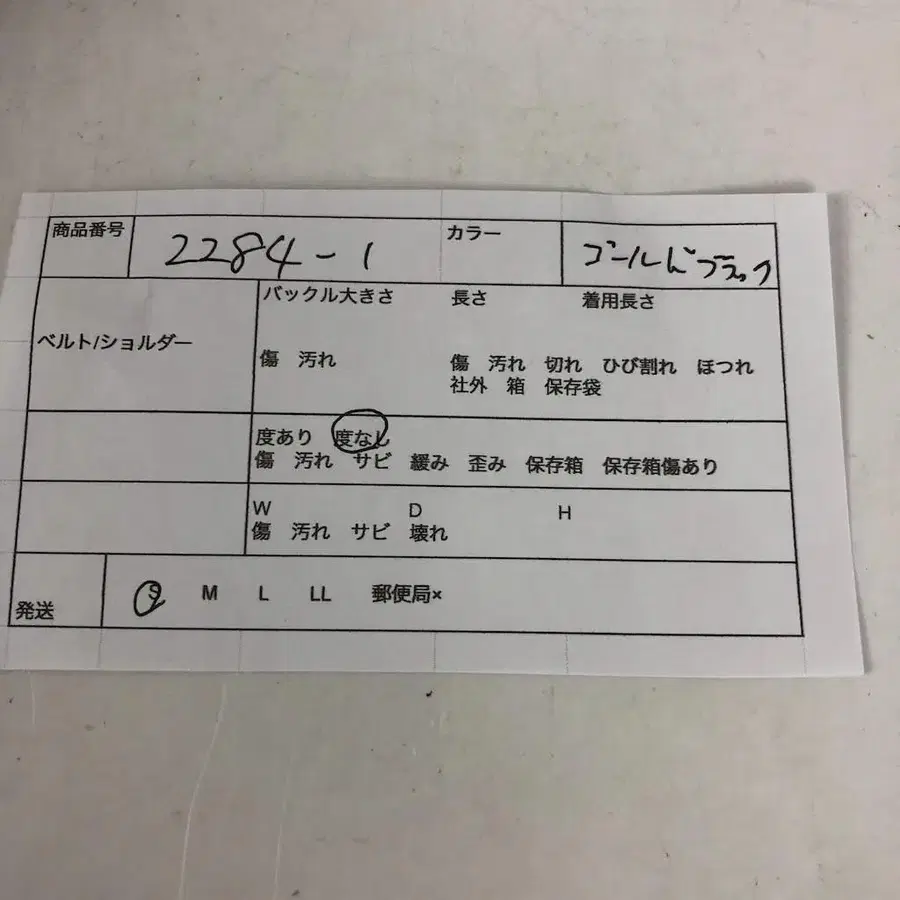 商品番号 2284-1 カラー ゴールドブラック
バックル大きさ 長さ 着用長さ
ベルト/ショルダー
傷 汚れ 傷 汚れ 切れ ひび割れ ほつれ
社外 箱 保存袋
度あり 度なし
傷 汚れ サビ 緩み 歪み 保存箱 保存箱傷あり
W D H
傷 汚れ サビ 壊れ
発送 S M L LL 郵便局×